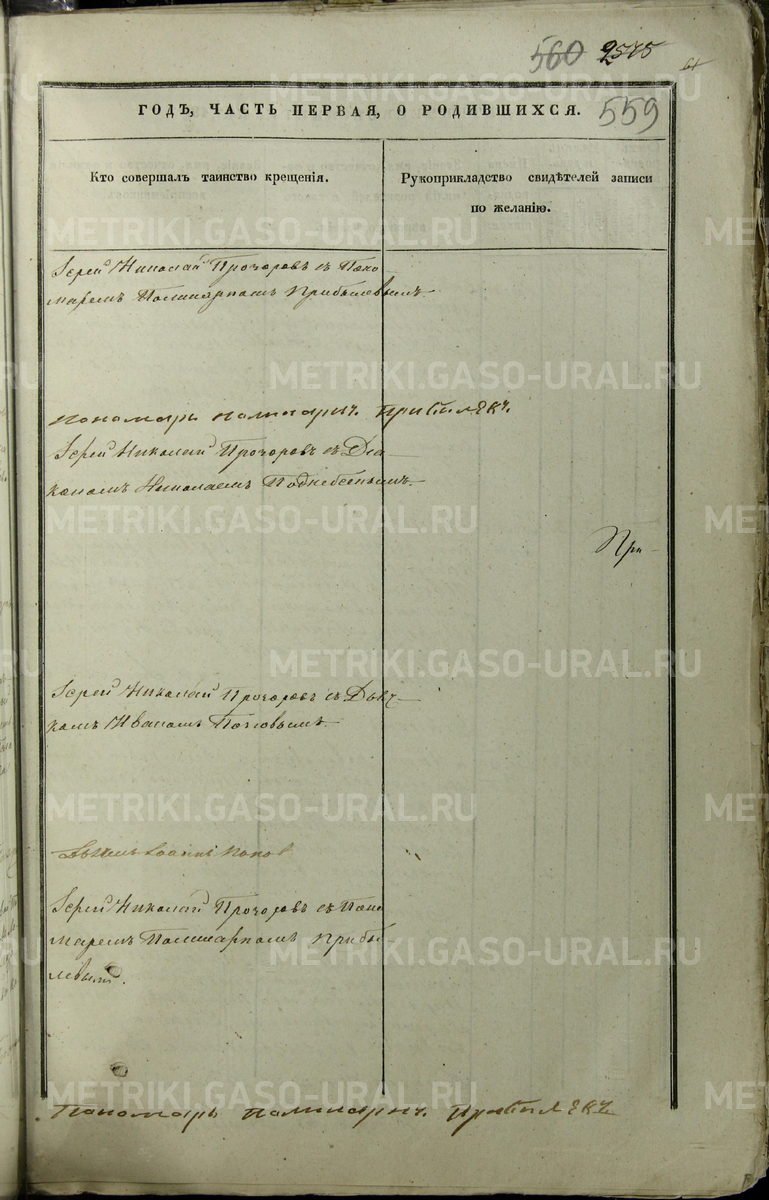 560 2575
61
ГОДЪ, ЧАСТЬ ПЕРВАЯ, О РОДИВШИХСЯ. 559
Кто совершалъ таинство крещенія.
Рукоприкладство свидѣтелей записи
по желанію.
Іерей Николай Прозоровъ съ Поно
маремъ Поликарпомъ Прибылевымъ
пономарь поликарпъ прибылевъ
Іерей Николай Прозоровъ съ Діа
кономъ Николаемъ Поднебеснымъ
При
Іерей Николай Прозоровъ съ Дьяч
комъ Иваномъ Поповымъ
Іоаннъ Попов
Іерей Николай Прозоровъ съ Поно
маремъ Поликарпомъ Прибы
левымъ.
Пономарь поликарпъ прибылевъ
METRIKI.GASO-URAL.RU